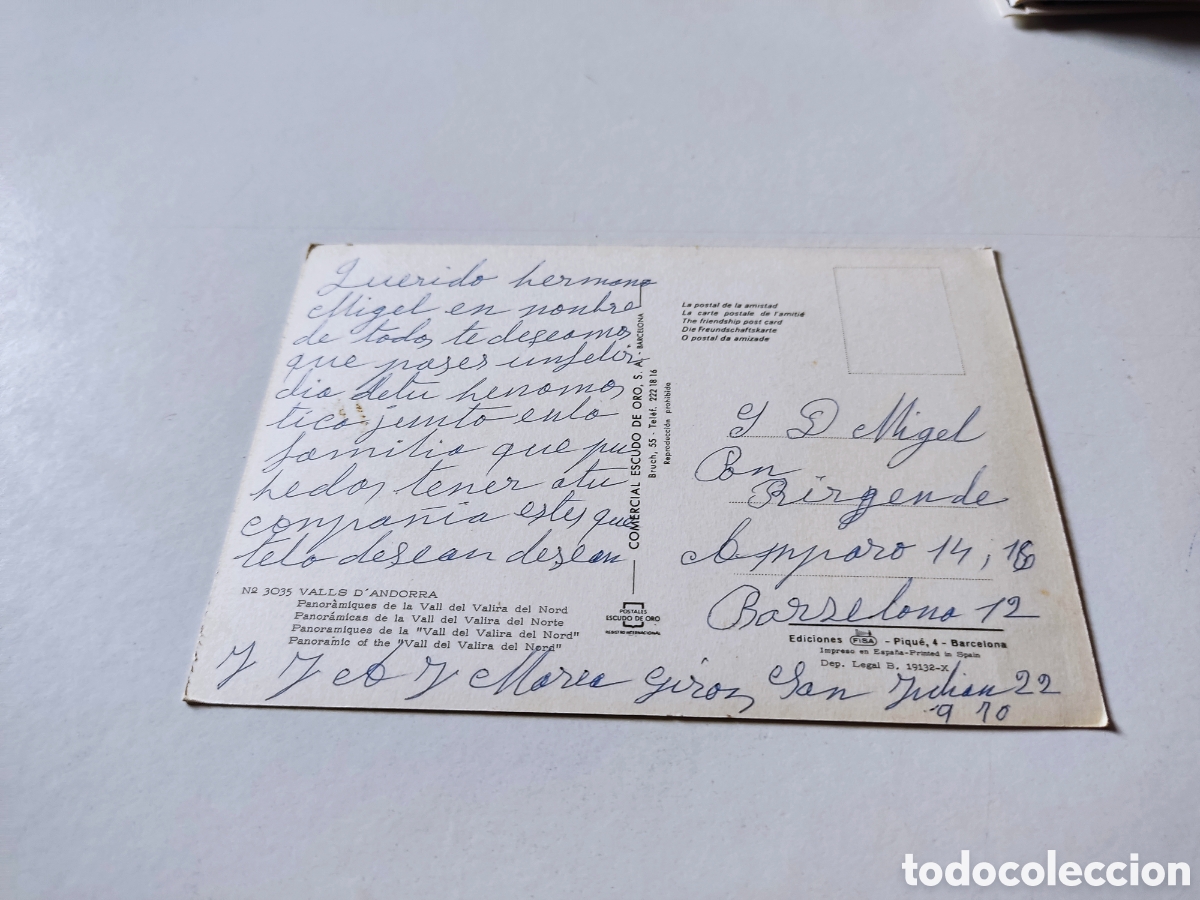 Querido hermano
Migel en nonbre
de todos te deseamos
que pases unfeliz
dia detu henomos
tico junto enla
familia que pu
hedas tener atu
conpañia estes que
telo desean desean
Nº 3035 VALLS D'ANDORRA
Panoràmiques de la Vall del Valira del Nord
Panorámicas de la Vall del Valira del Norte
Panoramiques de la "Vall del Valira del Nord"
Panoramic of the "Vall del Valira del Nord"
COMERCIAL ESCUDO DE ORO, S. A. - BARCELONA
Bruch, 55 - Teléf. 222 18 16
Reproducción prohibida
POSTALES
ESCUDO DE ORO
La postal de la amistad
La carte postale de l'amitié
The friendship post card
Die Freundschaftskarte
O postal da amizade
S D Migel
Con
Birgende
Amparo 14, 16
Barzelona 12
Ediciones FISA - Piqué, 4 - Barcelona
Impreso en España-Printed in Spain
Dep. Legal B. 19132-X
Marea Giron San Julian 22
9 70
todocoleccion